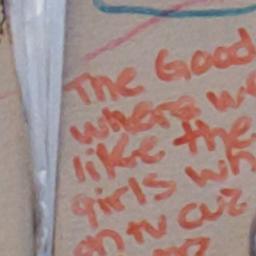 The Good
where we
like the
girls wh
on tv cuz